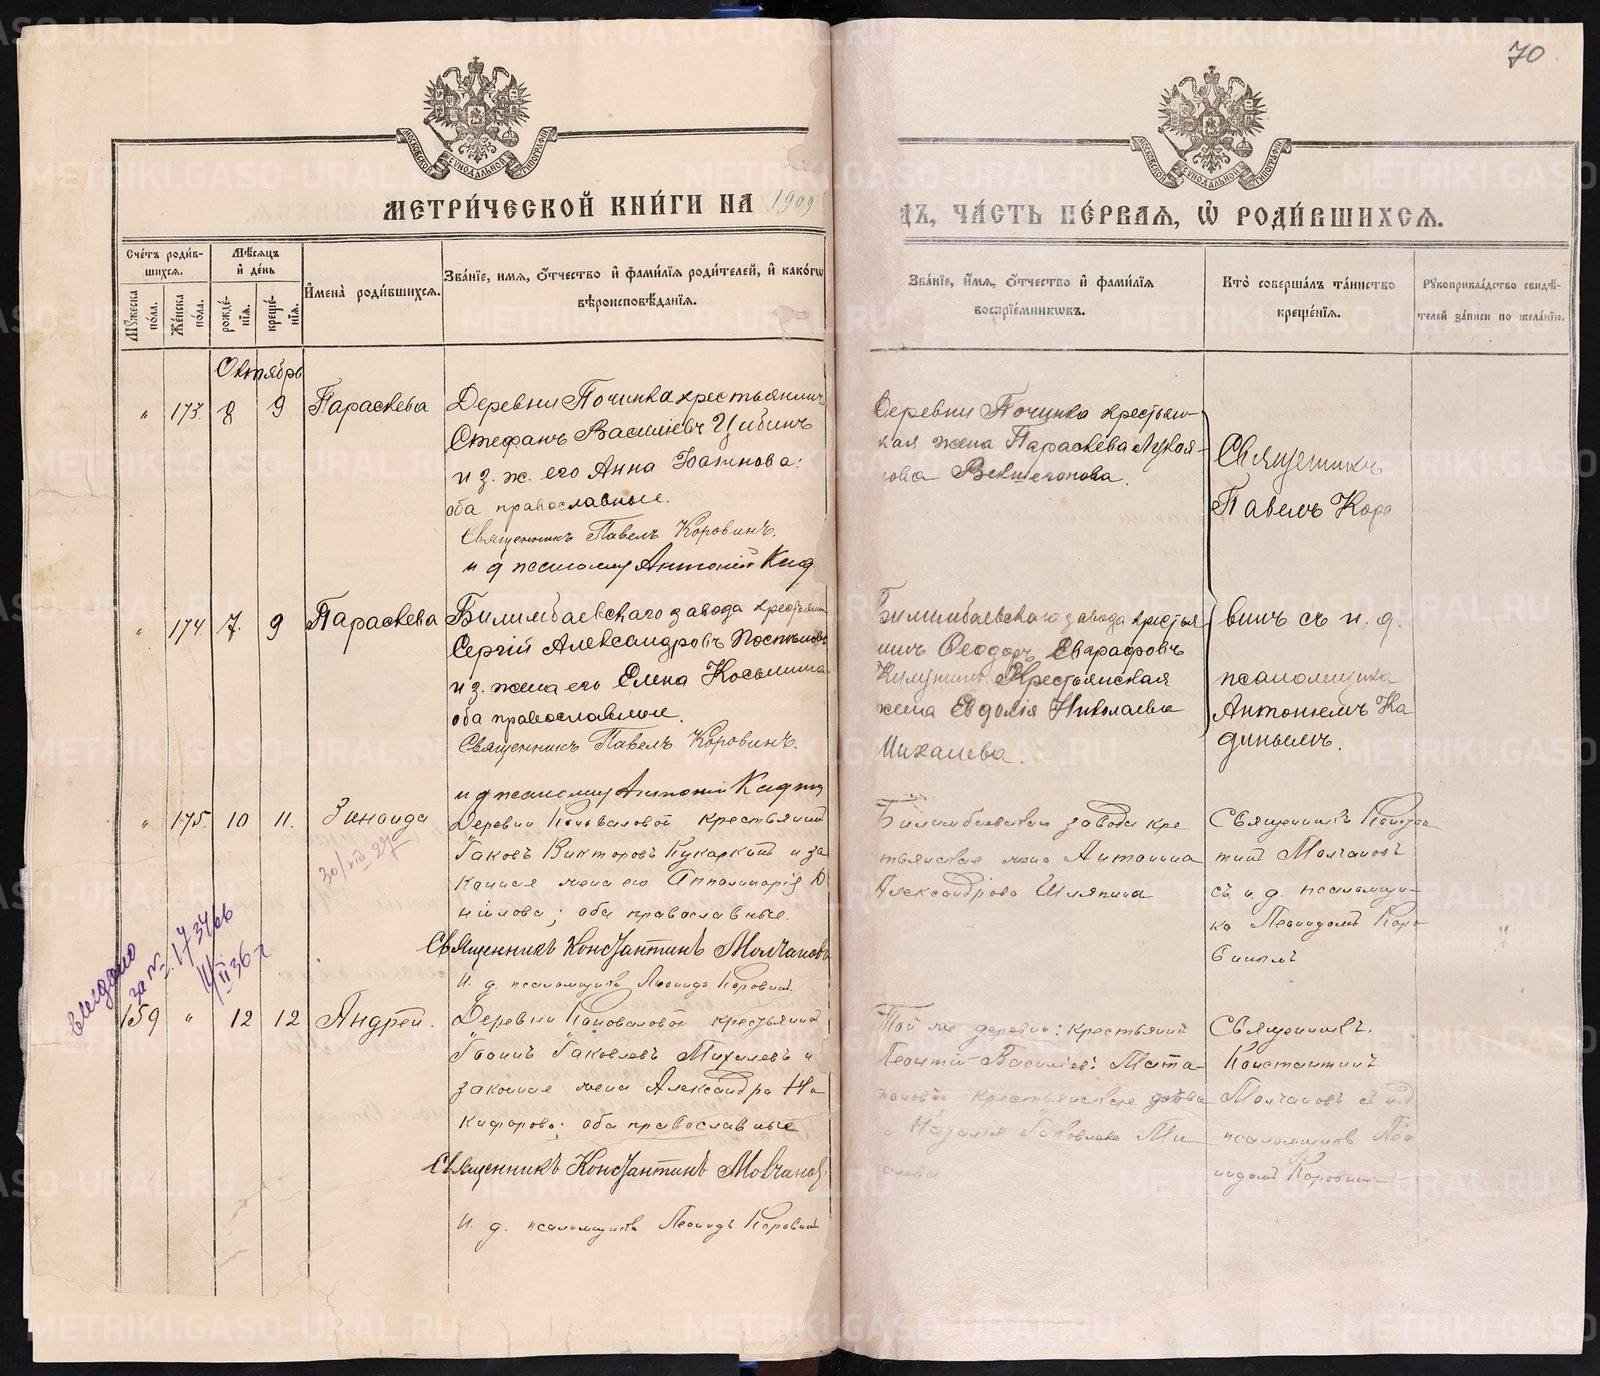 70
МОСКОВСКОЙ СѴНОДАЛЬНОЙ ТИПОГРАФІИ
МОСКОВСКОЙ СѴНОДАЛЬНОЙ ТИПОГРАФІИ
МЕТРИ́ЧЕСКОЙ КНИ́ГИ НА 1909
ДЪ, ЧА́СТЬ ПЕ́РВАЯ, Ѡ҆ РОДИ́ВШИХСЯ.
Сче́тъ роди́в-
шихся.
Мѣ́сяцъ
и҆ де́нь
Мꙋ́жеска
по́ла.
Же́нска
по́ла.
рожде́-
нїя.
креще́-
нїя.
И҆мена̀ роди́вшихся.
Зва́нїе, имя, ѻ҆́тчество и҆ фами́лїя роди́телей, и҆ како́гѡ
вѣроисповѣ́данїя.
Зва́нїе, и҆́мя, ѻ҆́тчество и҆ фами́лїя
воспрїе́мникѡвъ.
Кто̀ соверша́лъ та́инство
креще́нїя.
Рꙋкоприкла́дство свидѣ́-
телей за́писи по жела́нїю.
Октябрь
" 173. 8 9 Параскева
Деревни Починка крестьянинъ
Стефанъ Василіевъ Цибинъ
и з. ж. его Анна
оба православные.
Священникъ Павелъ Коровинъ.
и д псаломщ Антоній Кад
Деревни Починка крестьян-
кая жена Параскева Лукоя-
нова
Священникъ
Павелъ Коро
" 174. 7. 9 Параскева
Билимбаевскаго завода крестьянин
Сергій Александровъ Постыловъ
и з. жена его Елена Косьмина
оба православные.
Священникъ Павелъ Коровинъ.
и д псаломщ Антоній Кадин
Билимбаевскаго завода крестья
нинъ Ѳеодоръ Евграфовъ
Крестьянская
жена Евдокія Николаева
Михалева.
винъ съ и. д.
псаломщика
Антоніемъ Ка
диныемъ.
" 175. 10 11. Зинаида
30/VIII 29 г
Деревни Коноваловой крестьянинъ
Іаковъ Викторовъ Кукаркинъ и за
конная жена его Апполинарія Д
нилова; оба православные.
Священникъ Константинъ Молчановъ
И. д. псаломщика Леонидъ Коровинъ.
Билимбаевскаго завода кре
стьянская жена Антонина
Александрова Шляпина
Священникъ Констан
тинъ Молчановъ
съ и. д. псаломщи-
ка Леонидомъ Коро
винымъ
выдано
за №
1734 св
II 36 г
159 " 12 12 Андрей.
Деревни Коноваловой крестьянинъ
Іоаннъ Іаковлевъ Михалевъ и
законная жена Александра Ни
кифорова; оба православные
Священникъ Константинъ Молчановъ
И. д. псаломщика Леонидъ Коровинъ
Той же деревни: крестьянинъ
Леонтій Василіевъ Пота-
повъ, крестьянская дѣвица
Наталія Іаковлева Ми
халева
Священникъ.
Константинъ
Молчановъ съ и д
псаломщика Лео
нидомъ Коровины
METRIKI.GASO-URAL.RU